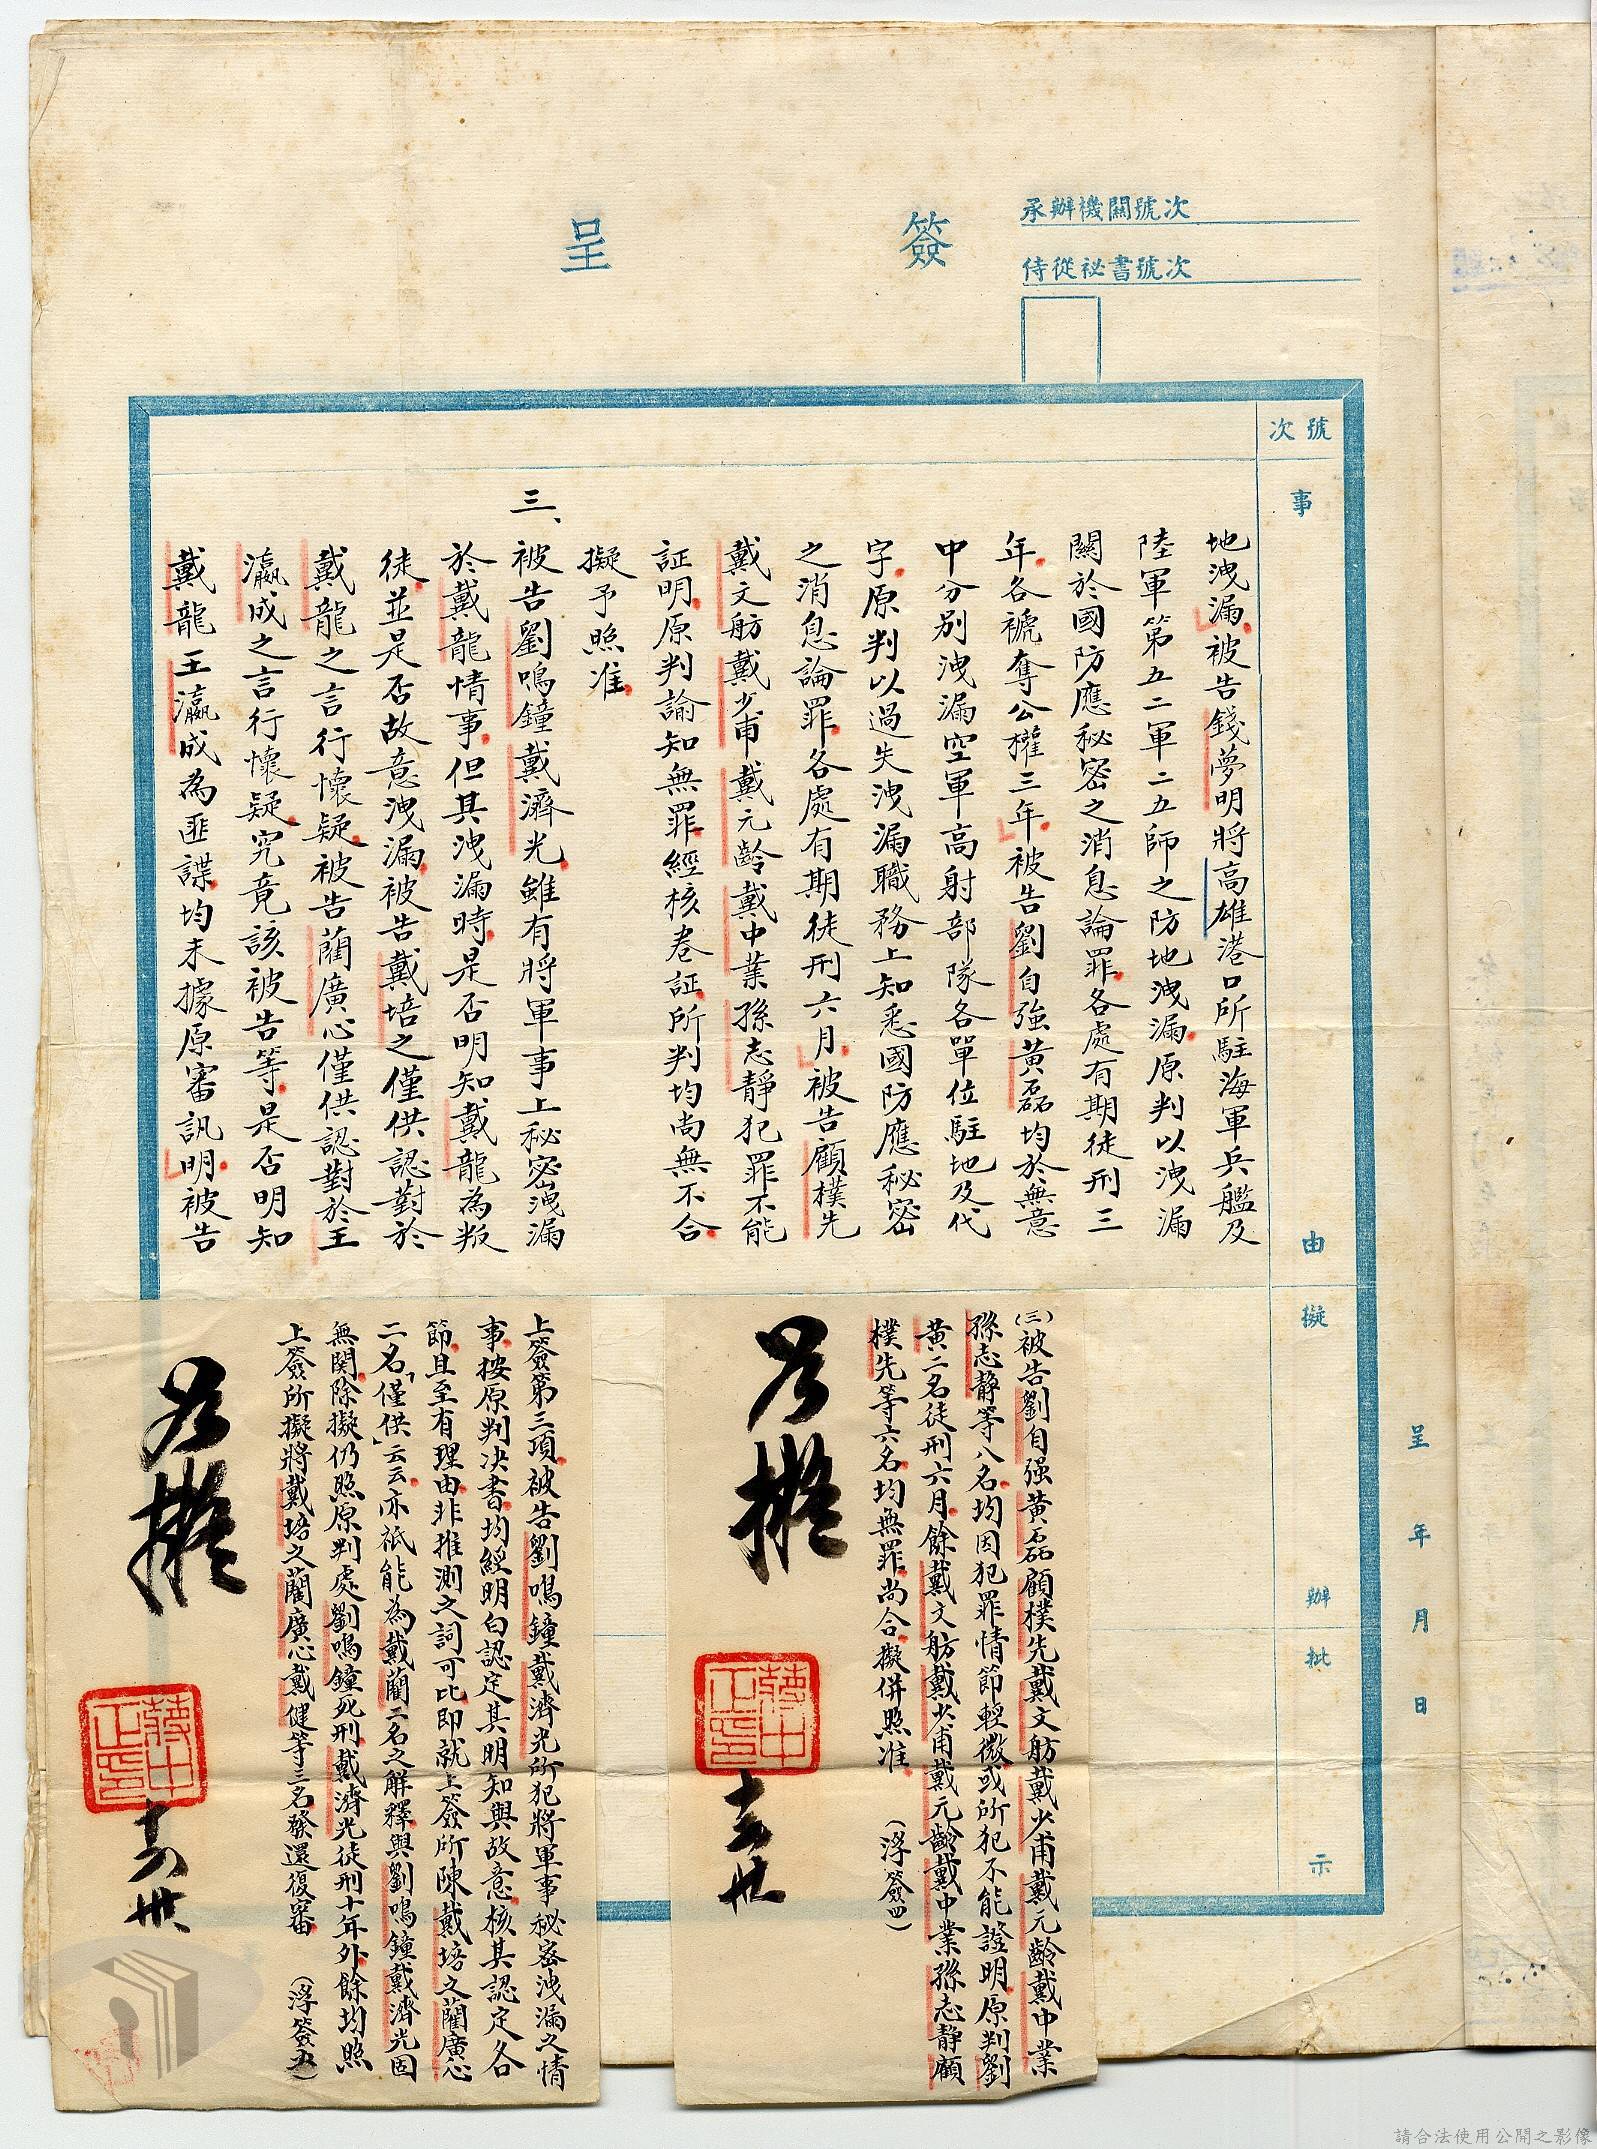 簽呈
承辦機關號次
侍從祕書號次
號次
事由
擬辦
批示
呈 年 月 日
地洩漏。被告錢夢明將高雄港口所駐海軍兵艦及
陸軍第五二軍二五師之防地洩漏。原判以洩漏
關於國防應秘密之消息論罪。各處有期徒刑三
年。各褫奪公權三年。被告劉自強黃磊均於無意
中分別洩漏空軍高射部隊各單位駐地及代
字。原判以過失洩漏職務上知悉國防應秘密
之消息論罪。各處有期徒刑六月。被告顧樸先
戴文舫戴少甫戴元齡戴中業孫志靜犯罪不能
証明。原判諭知無罪。經核卷証。所判均尚無不合。
擬予照准。
三、被告劉鳴鐘戴濟光。雖有將軍事上秘密洩漏
於戴龍情事。但其洩漏時。是否明知戴龍為叛
徒。並是否故意洩漏。被告戴培之僅供認對於
戴龍之言行懷疑。被告藺廣心僅供認對於王
瀛成之言行懷疑。究竟該被告等。是否明知
戴龍王瀛成為匪諜。均未據原審訊明。被告
(三)被告劉自强黃磊顧樸先戴文舫戴少甫戴元齡戴中業
孫志靜等八名。均因犯罪情節輕微或所犯不能證明。原判劉
黃二名徒刑六月。餘戴文舫戴少甫戴元齡戴中業孫志靜顧
樸先等六名。均無罪。尚合。擬併照准。 (浮簽四)
如擬
蔣中正印
上簽第三項。被告劉鳴鐘戴濟光所犯將軍事秘密洩漏之情
事。按原判決書。均經明白認定其明知與故意。核其認定各
節。且至有理由。非推測之詞可比。即就上簽所陳戴培之藺廣心
二名「僅供」云云。亦祇能為戴藺二名之解釋。與劉鳴鐘戴濟光固
無関。除擬仍照原判處劉鳴鐘死刑。戴濟光徒刑十年外。餘均照
上簽所擬將戴培之藺廣心戴健等三名發還復審 (浮簽五)
如擬
蔣中正印
請合法使用公開之影像